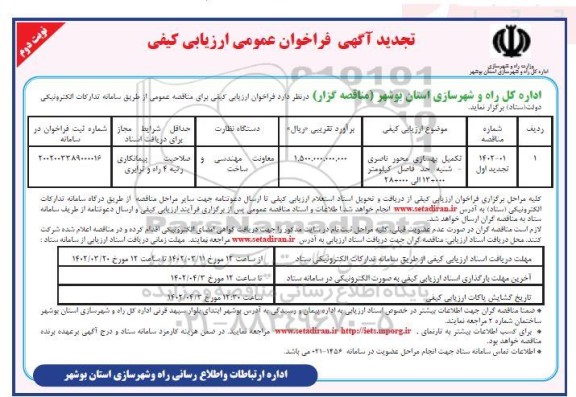 نوبت دوم
تجدید آگهی فراخوان عمومی ارزیابی کیفی
وزارت راه و شهرسازی
اداره کل راه و شهرسازی استان بوشهر
اداره کل راه و شهرسازی استان بوشهر (مناقصه گزار) درنظر دارد فراخوان ارزیابی کیفی برای مناقصه عمومی از طریق سامانه تدارکات الکترونیکی
دولت(ستاد) برگزار نماید.
ردیف شماره مناقصه موضوع ارزیابی کیفی برآورد تقریبی «ریال» دستگاه نظارت حداقل شرایط مجاز برای دریافت اسناد شماره ثبت فراخوان در سامانه
۱ ۱۴۰۲-۰۱ تجدید اول تکمیل بهسازی محور ناصری - شنبه حد فاصل کیلومتر ۱۳+۰۰۰ الی ۲۸+۰۰۰ ۱,۵۰۰,۰۰۰,۰۰۰,۰۰۰ معاونت مهندسی و ساخت صلاحیت پیمانکاری رتبه ۴ راه و ترابری ۲۰۰۲۰۰۳۳۸۹۰۰۰۰۱۶
کلیه مراحل برگزاری فراخوان ارزیابی کیفی از دریافت و تحویل اسناد استعلام ارزیابی کیفی تا ارسال دعوتنامه جهت سایر مراحل مناقصه از طریق درگاه سامانه تدارکات
الکترونیکی (ستاد) به آدرس www.setadiran.ir انجام خواهد شد. اطلاعات و اسناد مناقصه عمومی پس از برگزاری فرآیند ارزیابی کیفی و ارسال دعوتنامه از طریف سامانه
ستاد به مناقصه گران ارسال خواهد شد.
لازم است مناقصه گران در صورت عدم عضویت قبلی، کلیه مراحل ثبت نام در سایت مذکور را جهت دریافت گواهی امضای الکترونیکی اقدام کرده و در مناقصه اعلام شده شرکت
کنند. محل دریافت اسناد ارزیابی: مناقصه گران جهت دریافت اسناد ارزیابی به آدرس www.setadiran.ir مراجعه نمایند. مهلت زمانی دریافت اسناد ارزیابی از سامانه ستاد :
مهلت دریافت اسناد ارزیابی کیفی از طریق سامانه تدارکات الکترونیکی ستاد از ساعت ۱۲ مورخ ۱۴۰۲/۰۳/۱۱ تا ساعت ۱۲ مورخ ۱۴۰۲/۰۳/۲۰
آخرین مهلت بارگذاری اسناد ارزیابی کیفی به صورت الکترونیکی در سامانه ستاد تا ساعت ۱۲ مورخ ۱۴۰۲/۰۴/۳
تاریخ گشایش پاکات ارزیابی کیفی ساعت ۱۲:۳۰ مورخ ۱۴۰۲/۰۴/۳
* ضمنا مناقصه گران جهت اطلاعات بیشتر در خصوص اسناد ارزیابی به اداره پیمان و رسیدگی به آدرس بوشهر ابتدای بلوار سپهبد قرنی اداره کل راه و شهرسازی استان بوشهر
ساختمان شماره ۲ مراجعه نمایند.
* برای کسب اطلاعات بیشتر به تارنمای http://iets.mporg.ir - www.setadiran.ir مراجعه نمایید. در ضمن هزینه کارمزد سامانه ستاد و درج آگهی برعهده برنده
مناقصه خواهد بود.
* اطلاعات تماس سامانه ستاد جهت انجام مراحل عضویت در سامانه ۱۴۵۶-۰۲۱ می باشد.
اداره ارتباطات واطلاع رسانی راه وشهرسازی استان بوشهر